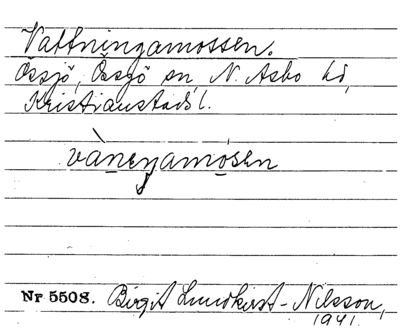 Vattningamossen.
Össjö, Össjö sn, N. Åsbo hd,
Kristianstads l.
vàneŋamósen
Nr 5508. Birgit Lundkvist-Nilsson,
1941.